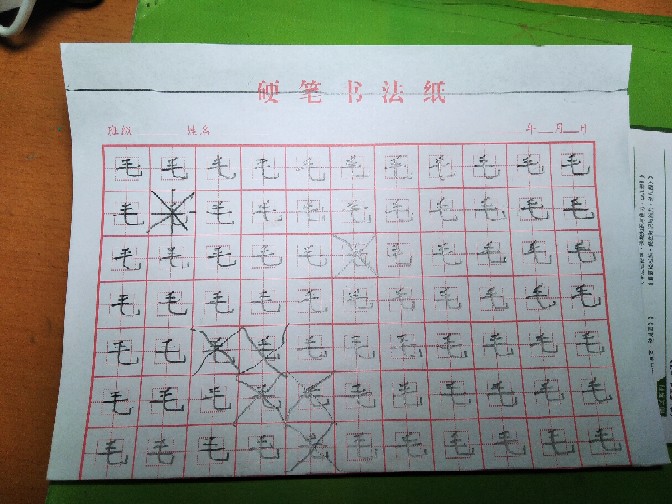 硬笔书法纸
班级 姓名 年 月 日
毛 毛 毛 毛 毛 毛 毛 毛 毛 毛 毛
毛 毛 毛 毛 毛 毛 毛 毛 毛 毛
毛 毛 毛 毛 毛 毛 毛 毛 毛 毛 毛
毛 毛 毛 毛 毛 毛 毛 毛 毛 毛 毛
毛 毛 毛 毛 毛 毛 毛 毛 毛 毛 毛
毛 毛 毛 毛 毛 毛 毛 毛 毛 毛 毛
毛 毛 毛 毛 毛 毛 毛 毛 毛 毛 毛